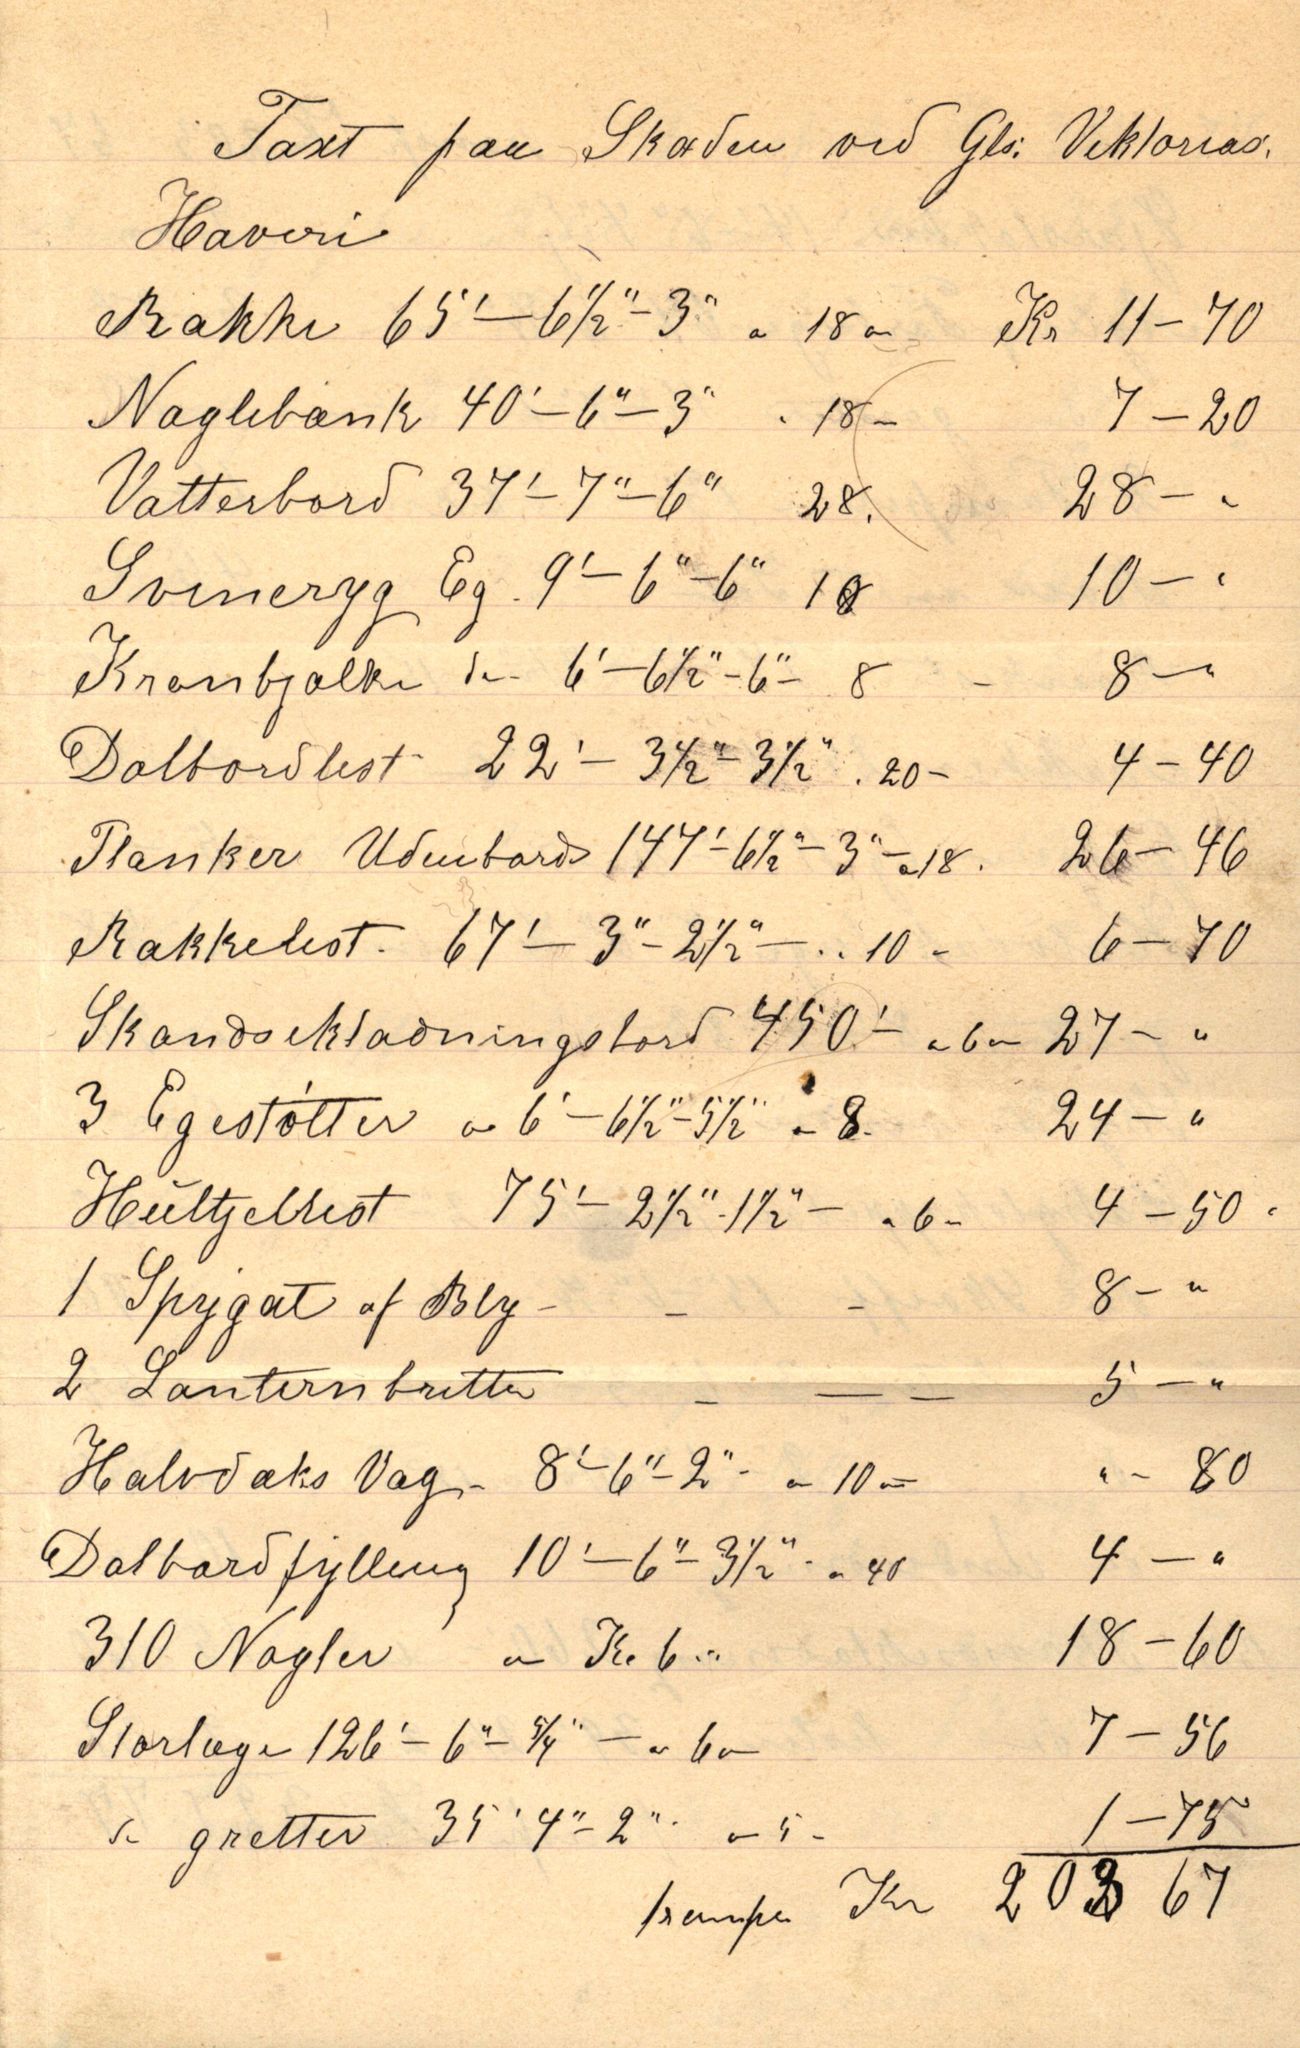 Taxt paa Skaden ved Gls: Viktorias.
Haveri
Rakke 65'—6½"—3" a 18 " Kr 11—70
Naglebænk 40'—6"—3" " 18 — 7—20
Vatterbord 37'—7"—6" 28. 28—"
Svineryg Eg. 9'—6"—6" 10 10—"
Kranbjælke do 6'—6½"—6"— 8 — 8—"
Dalbordlist 22'—3½"—3½" . 20— 4—40
Planker Udenbords 147'—6½"—3"— a 18. 26—46
Rakkelist. 67'—3"—2½"— .. 10 - 6—70
Skandseklædningsbord 450'— a 6 " 27—"
3 Egestøtter a 6'—6½"—5½" a 8. 24—"
Hültjellist 75'—2½"-1½"— a 6 - 4—50
1 Spygat af Bly - - - 8—"
2 Lanternbretter - — — 5—"
Halvdæks Væg - 8'—6"—2" - a 10 " " - 80
Dalbordfylling 10'—6"—3½" - a 40 4—"
310 Nagler a Kr 6 " 18—60
Storluge 126'—6"—5/4"— a 6 " 7—56
do gretter 35' 4"—2" - a 5 - 1—75
Kr 203 67